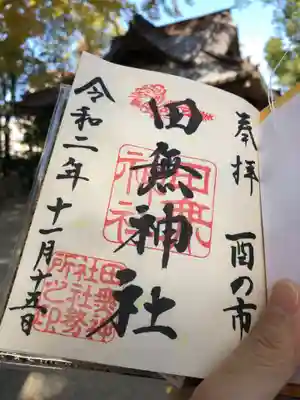 奉拝 酉の市
田無神社
令和二年 十一月十五日
田無神社
田無神社社務所之印